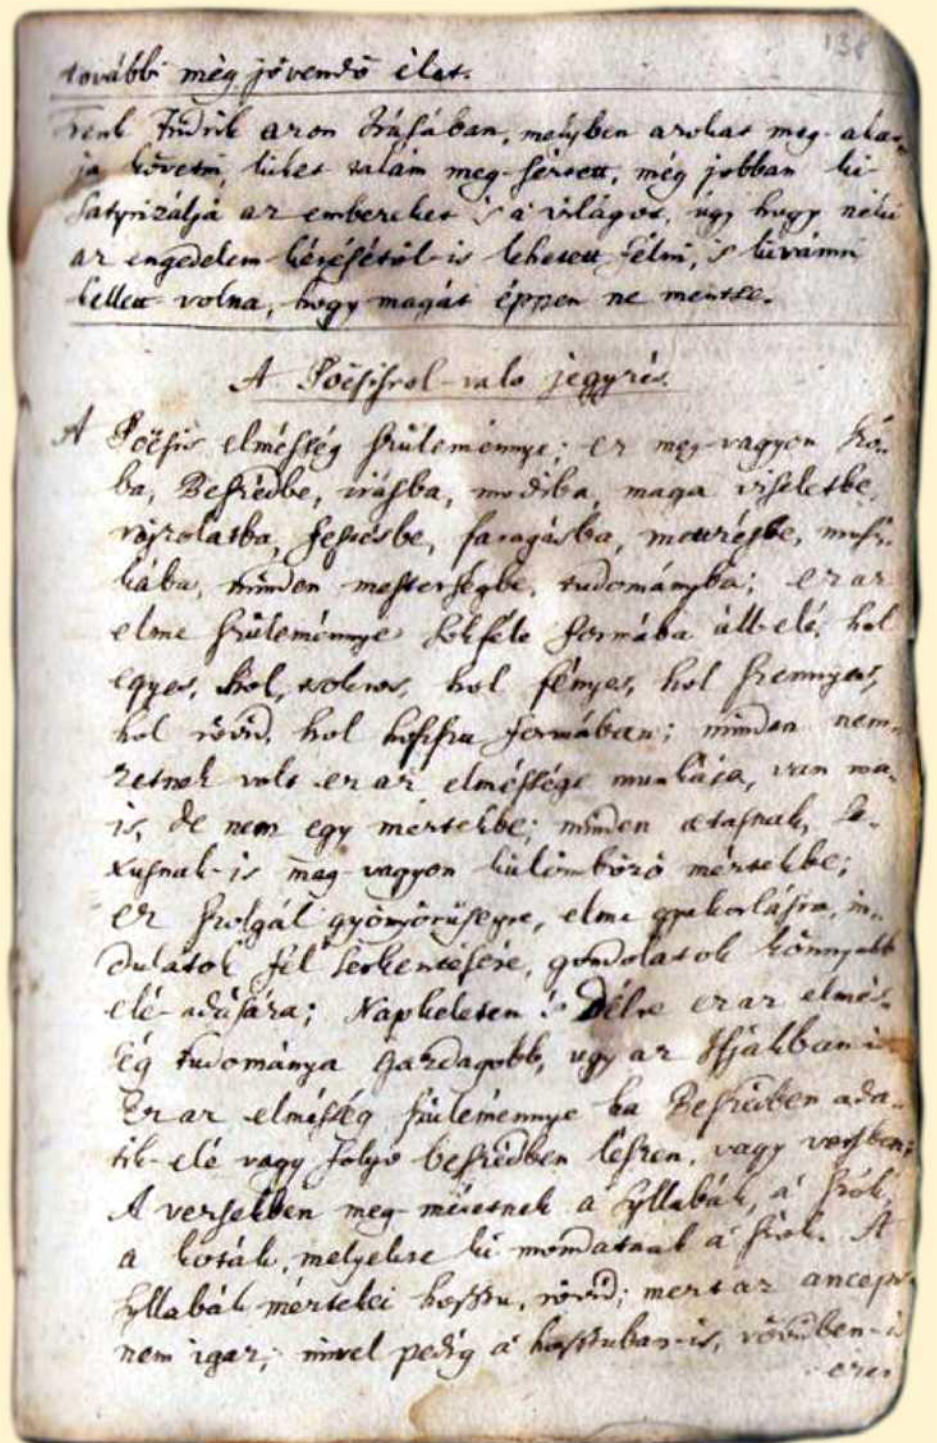 138
további még jövendő élet.
Trenk Fridrik azon Írásában, melyben azokat meg-akar-
ja követni, kiket talám meg-sértett, még jobban ki-
Satyrizálja az embereket 's a' világot, úgy hogy néki
az engedelem-kéréstől-is lehetett félni, 's kivánni
kellett volna, hogy magát éppen ne mentse.
A Poësisrol-valo jegyzés.
A Poësis elmésség szüleménnye; ez meg-vagyon Szó-
ba, Beszédbe, irásba, modiba, maga viseletbe,
rajzolatba, festésbe, faragásba, metzésbe, musi-
kába, minden mesterségbe, tudományba; ez az
elme szüleménnye sokféle formába áll-elé, hol
egyes, hol, hol fényes, hol szennyes,
hol rövid, hol hosszu formában; minden nem-
zetnek volt ez az elméssége munkája, van ma-
is, de nem egy mértékbe; minden ætasnak, Se-
xusnak-is meg-vagyon külömböző mértékbe;
ez szolgál gyönyörüségre, elme gyakorlásra, in-
dulatok fel serkentésére, gondolatok könnyebb
elé-adására; Napkeleten 's Délre ez az elmés-
ség tudománya gazdagobb, ugy az Ifjakban is
Ez az elmésség szüleménnye ha Beszédben ada-
tik-elé vagy folyo beszédben lészen, vagy versben;
A versekben meg-méretnek a' syllabák, a' szók,
a kóták, melyekre ki mondatnak a' szók. A
syllabák mértékei hosszu, rövid; mert az anceps
nem igaz; mivel pedig a' hosszuban-is, rövidben-is